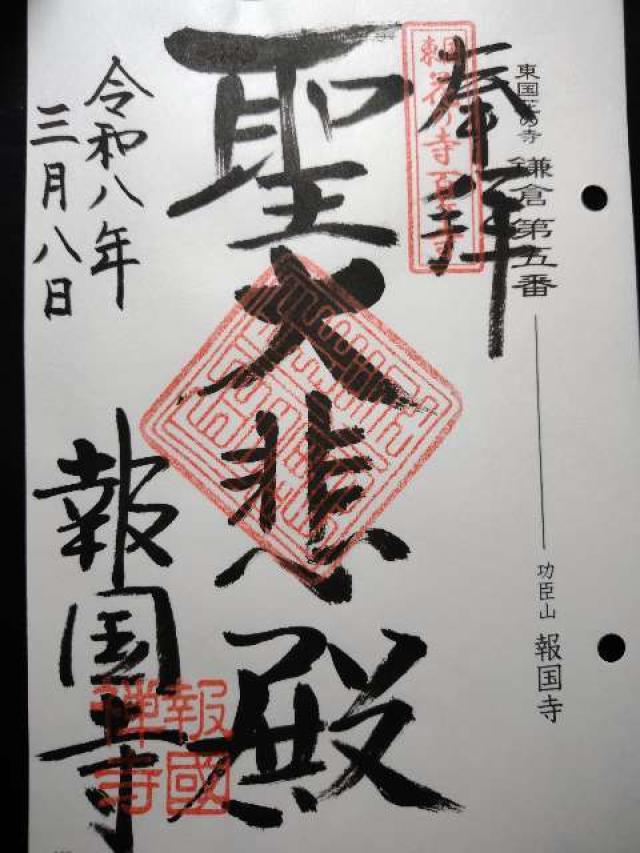 東国花の寺 鎌倉第五番
功臣山 報国寺
奉拝
聖大悲殿
令和八年
三月八日
報国寺
報國
禅寺